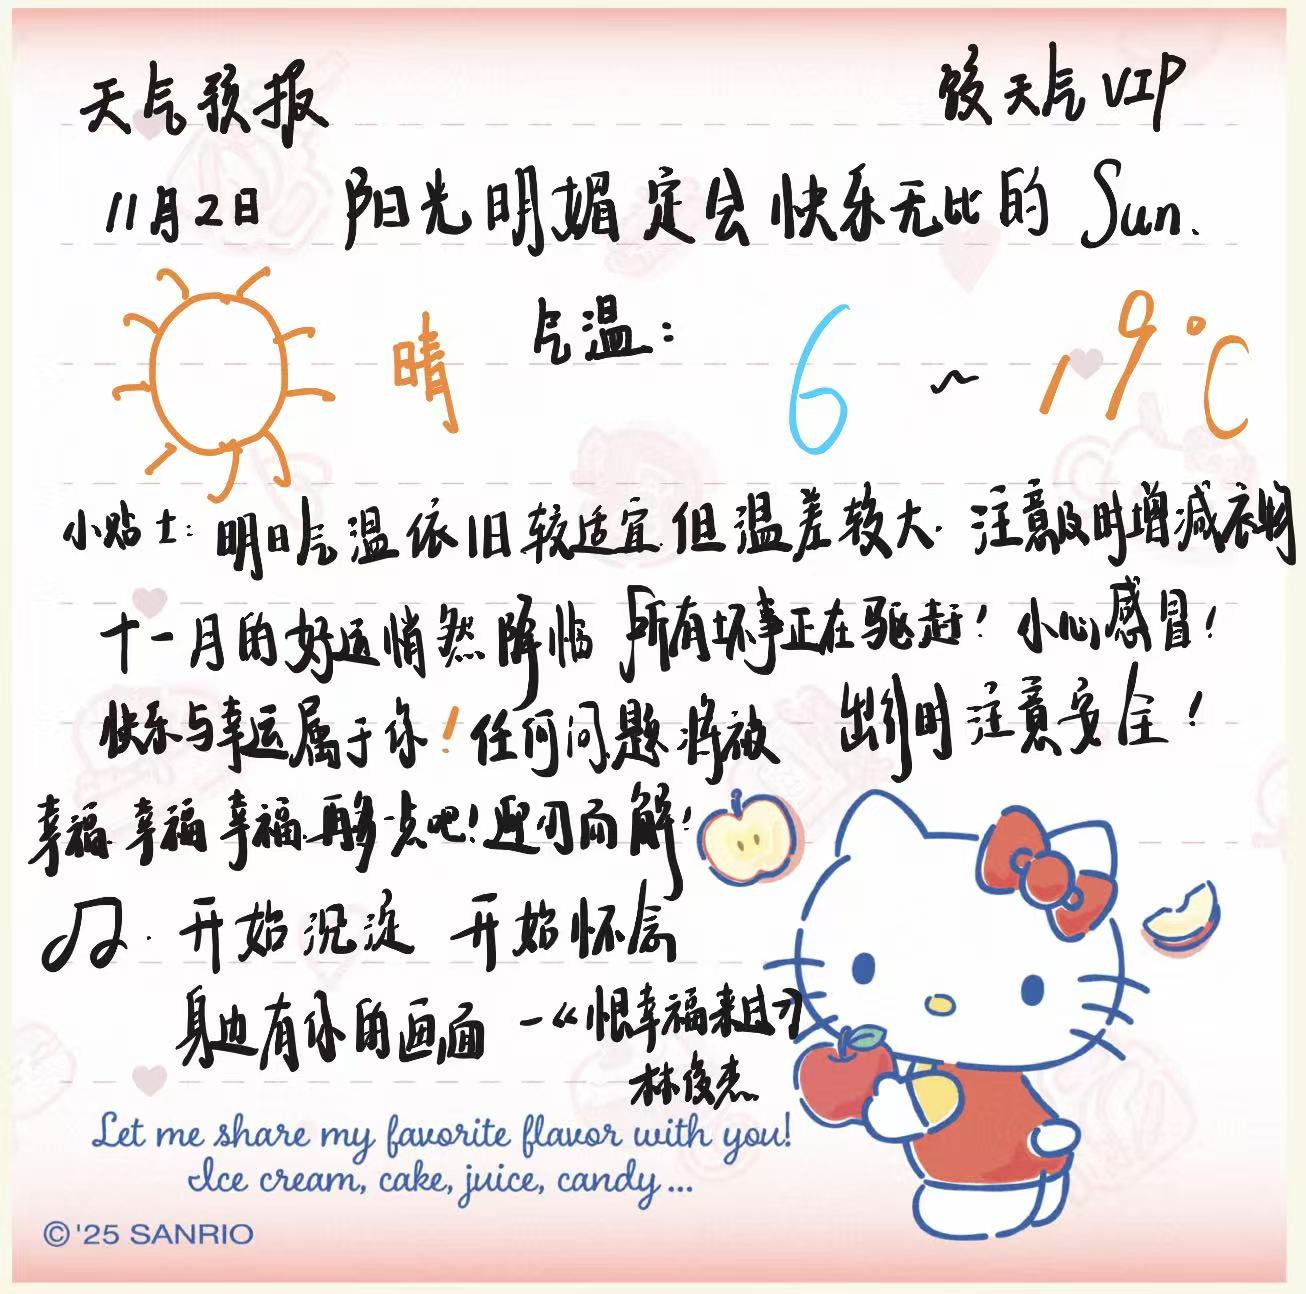 天气预报 天气VIP
11月2日 阳光明媚定会快乐无比的 Sun.
晴 气温: 6 ~ 19℃
小贴士: 明日气温依旧较适宜.但温差较大.注意及时增减衣物
十一月的好运悄然降临 所有坏事正在驱赶! 小心感冒!
快乐与幸运属于你! 任何问题将被 出行时注意安全!
幸福.幸福.幸福.再多一点吧!迎刃而解!
♫. 开始沉淀 开始怀念
身边有你的画面 —《恨幸福来过》
林俊杰
Let me share my favorite flavor with you!
Ice cream, cake, juice, candy...
©'25 SANRIO